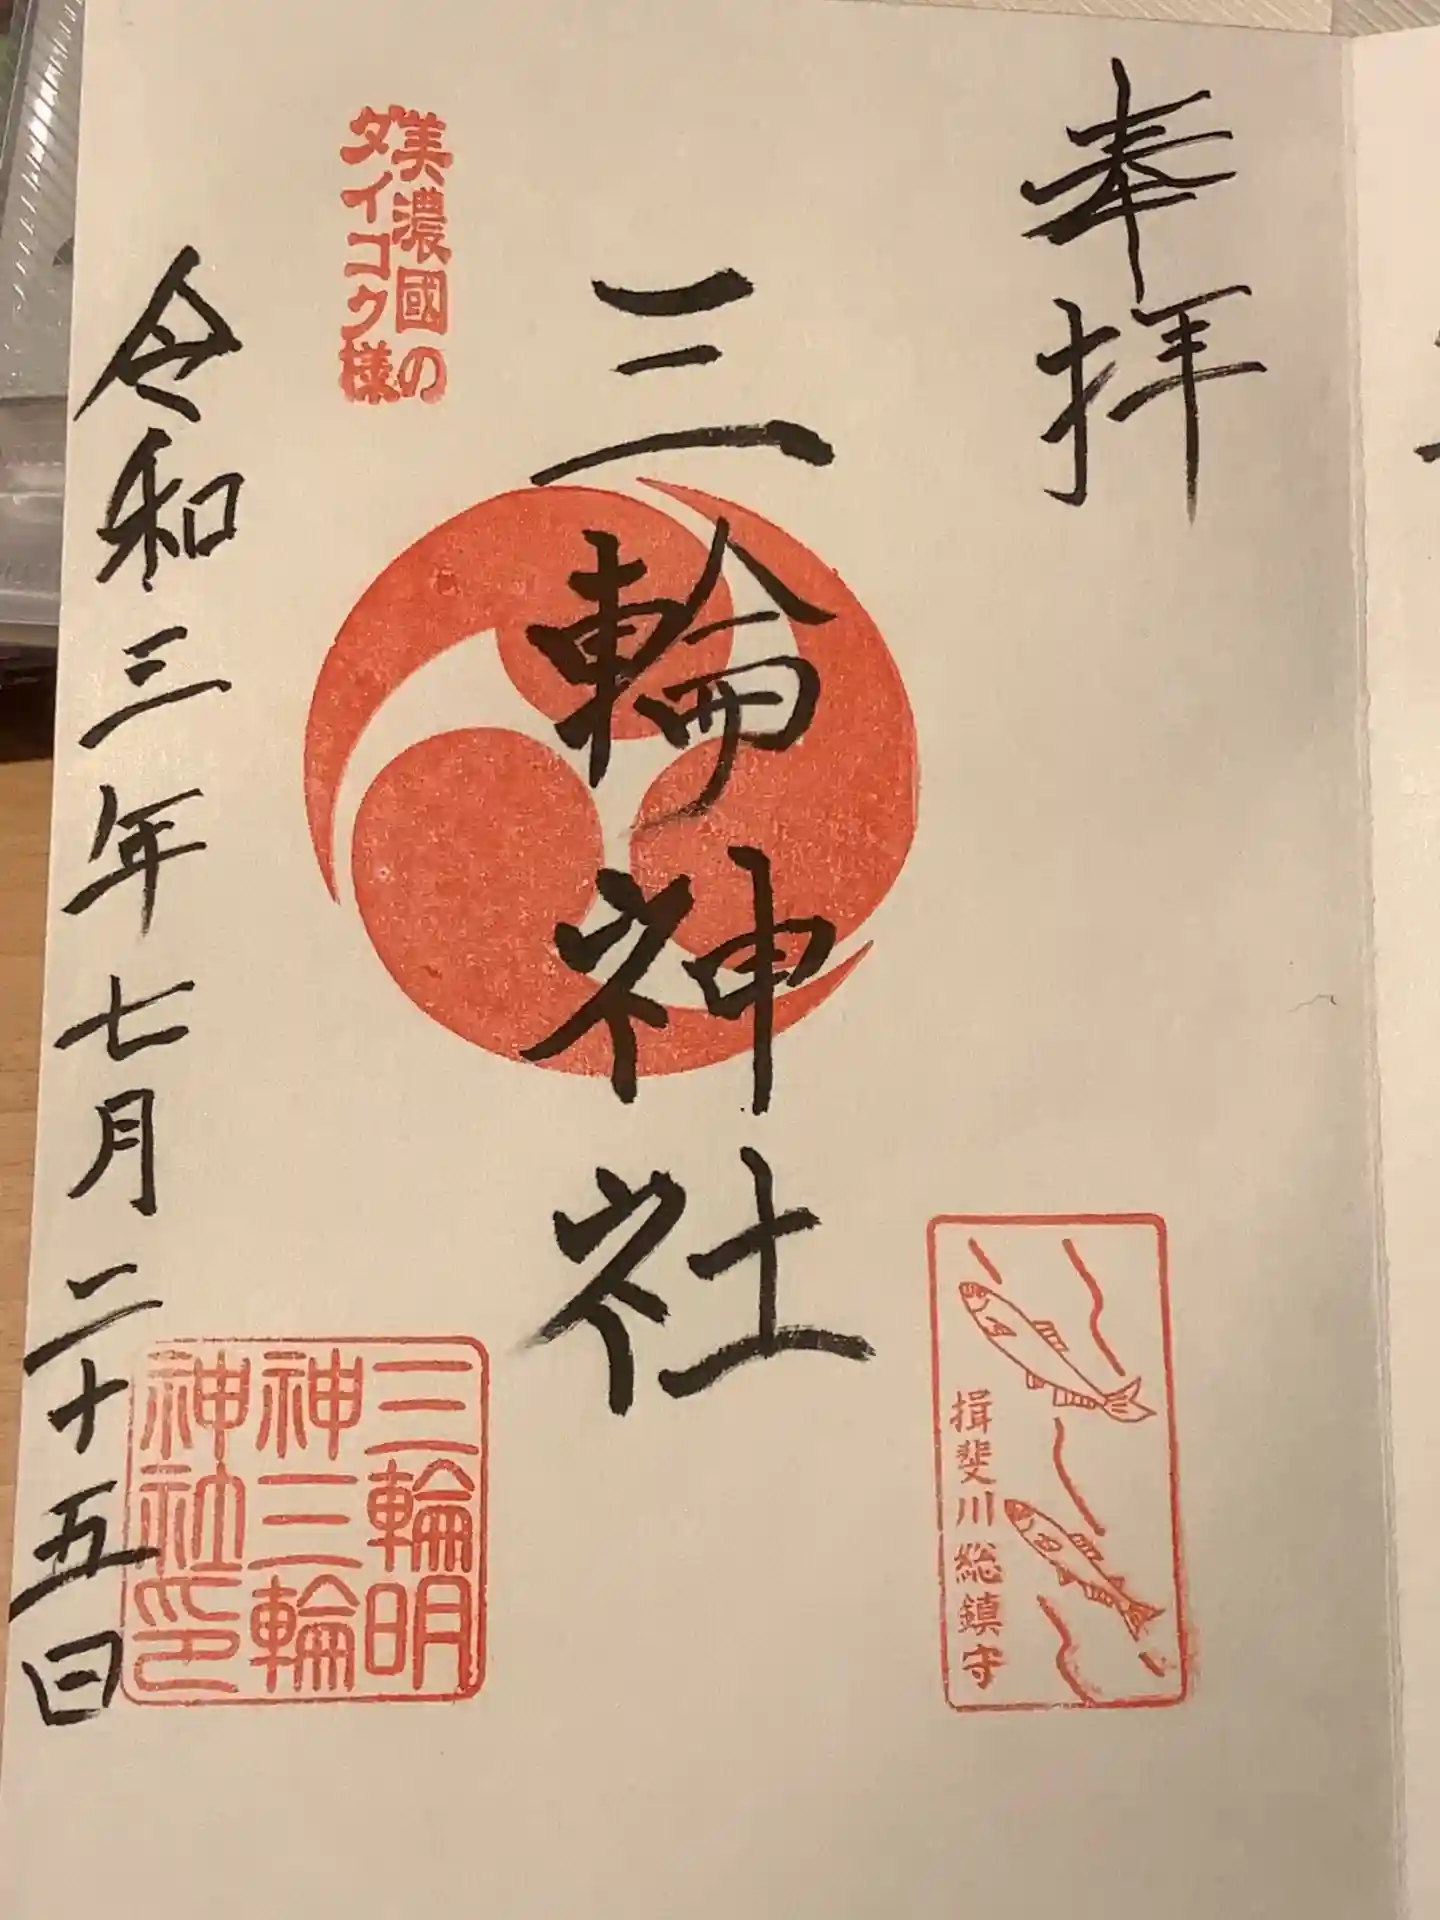 奉拝
揖斐川総鎮守
三輪神社
美濃國の
タイコク様
三輪明
神三輪
神社印
令和三年七月二十五日